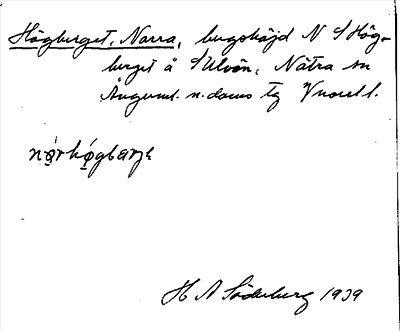 Högberget, Norra, bergshöjd N S Hög-
berget å S Ulvön, Nätra sn
Ångerml. n. doms tg Vnorrl l.
H A Söderberg 1939